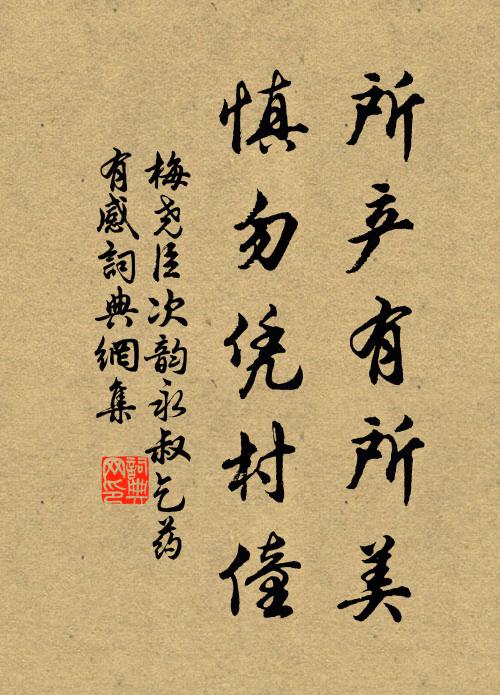 所产有所美
慎勿凭村僮
梅尧臣次韵永叔乞药
有感詞典網集
詞典
网印